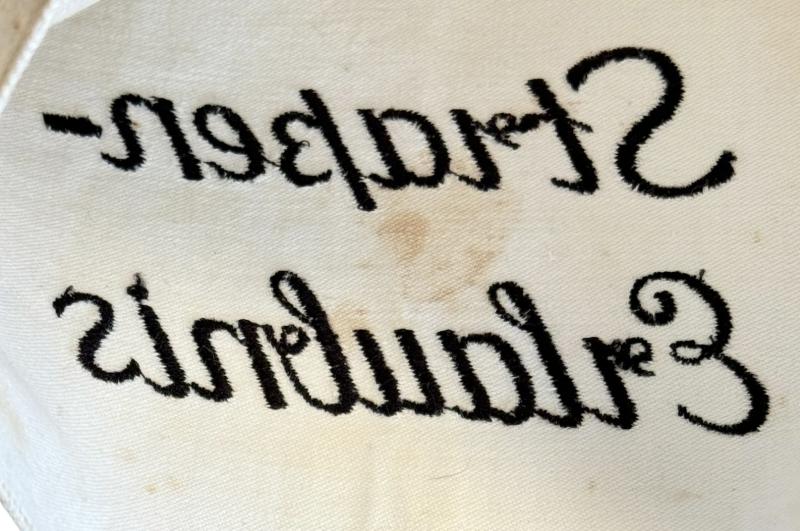 Straßen-
Erlaubnis